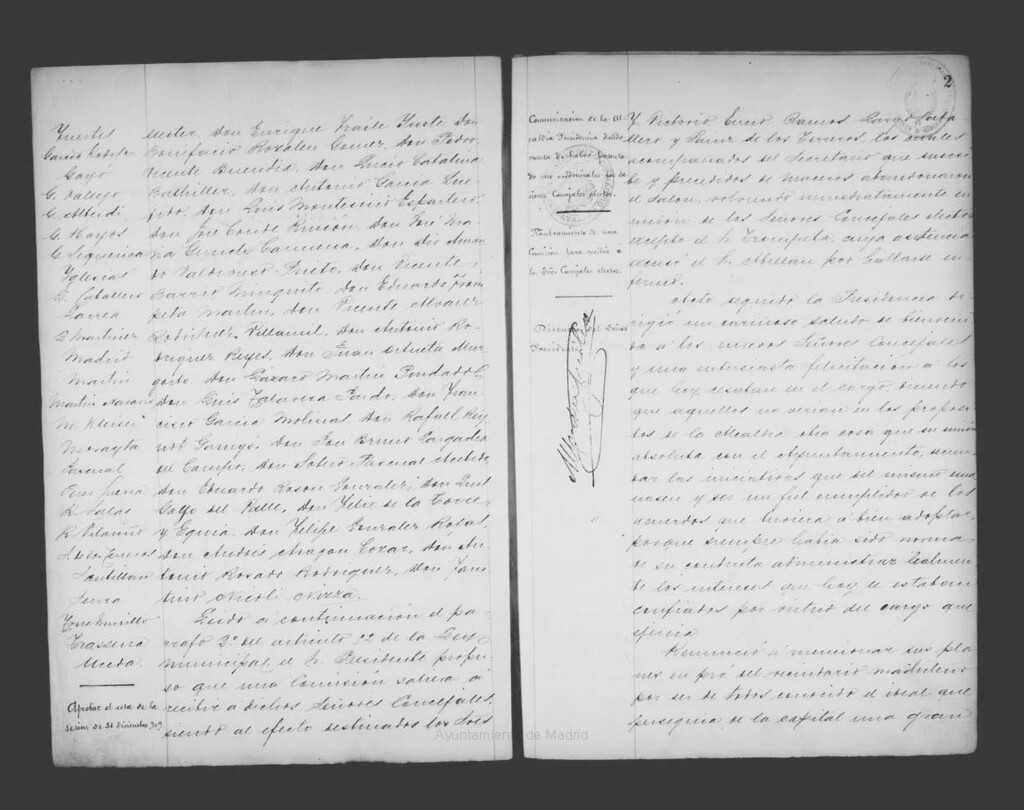 Fuentes
García Rodrigo
Gayo
G. Vallejo
G. Alberdi
G. Hoyos
G. Sequeira
Iglesias
L. Caballero
Llanea
L. Martínez
Madrid
Martín
Martín
M. Kleiser
Morayta
Pascual
R. Salas
R. Vilariño
S. de los Terreros
Santillán
Serra
Trasserra
Uceda
Aprobar el acta de la
sesión de 31 diciembre 909
electos, Don Enrique Fraile Yuste Don
Bonifacio Rozalen Gomez, Don Pedro
Vicente Buendía, Don Lucio Catalina
Bachiller, Don Antonio Garcia Que
jido, Don Luis Montesinos Espartero,
don José Conde Rincón, Don José Ma
ria Gurich Carmena, Don
do Valdivieso Prieto, Don Vicente
Barrio Minguito, Don Eduardo Trom
peta Marten, Don Vicente Alvarez
Rodriguez Villamil, Don Antonio Ro-
driguez Reyes, Don Juan Arbueta Mur
goitio, Don Lázaro Martin Pindado
Don Luis Talavera Pardo, Don Fran
cisco Garcia Molinas, Don Rafael Rey
not Garrigó, Don
del Campo, Don Sotero Pascual
Don Eduardo Rosón Gonzalez, Don Luis
Gayo del Valle, Don Felix de la Torre
y Eguia, Don Felipe Gonzalez Rojas,
Don Andrés Aragon Cozar, Don An
tonio Rosado Rodriguez, Don Faus
tino Nicoli Rivera.
Leido a continuación el pa-
rrafo 2º del articulo 52 de la Ley
municipal, el Sr. Presidente propu-
so que una Comisión saliera á
recibir á dichos Señores Concejales,
siendo al efecto designados los Sres
2
Comunicacion de la Al
caldia Presidencia dando
cuenta de haber
Concejales electos.
Nombramiento de una
Comisión para recibir á
los Sres Concejales electos.
Discurso del Señor
Presidente
Ramos Largo
llero y Sainz de los Terreros, los cuales
acompañados del Secretario que suscri
be y precedidos de maceros abandonaron
el Salon, volviendo inmediatamente en
union de los Señores Concejales electos
excepto el Sr. Trompeta, cuya asistencia
excusó el Sr. Abellan por hallarse en-
fermo.
Acto seguido la Presidencia di-
rigió un cariñoso saludo de bienveni
da á los nuevos Señores Concejales
y una entusiasta felicitacion á los
que hoy cesaban en el cargo, diciendo
que aquellos no verian en los propósi
tos de la Alcaldia otra cosa que su unión
absoluta con el Ayuntamiento,
dar las iniciativas que del mismo ema
nasen y ser un fiel cumplidor de los
acuerdos que tuviera á bien adoptar,
porque siempre habia sido norma
de su conducta administrar lealmen-
te los intereses que hoy le estaban
confiados por virtud del cargo que
ejercia.
Renunció á mencionar sus pla
nes en pró del vecindario madrileño
por ser de todos conocido el ideal que
perseguia de la capital una gran
Ayuntamiento de Madrid